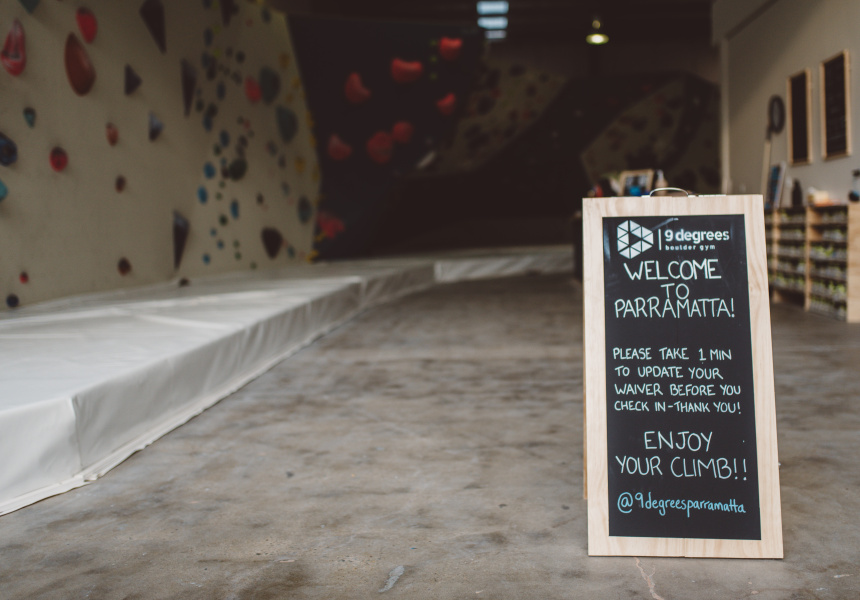 9 degrees
boulder gym
WELCOME
TO
PARRAMATTA!
PLEASE TAKE 1 MIN
TO UPDATE YOUR
WAIVER BEFORE YOU
CHECK IN-THANK YOU!
ENJOY
YOUR CLIMB!!
@9degreesparramatta